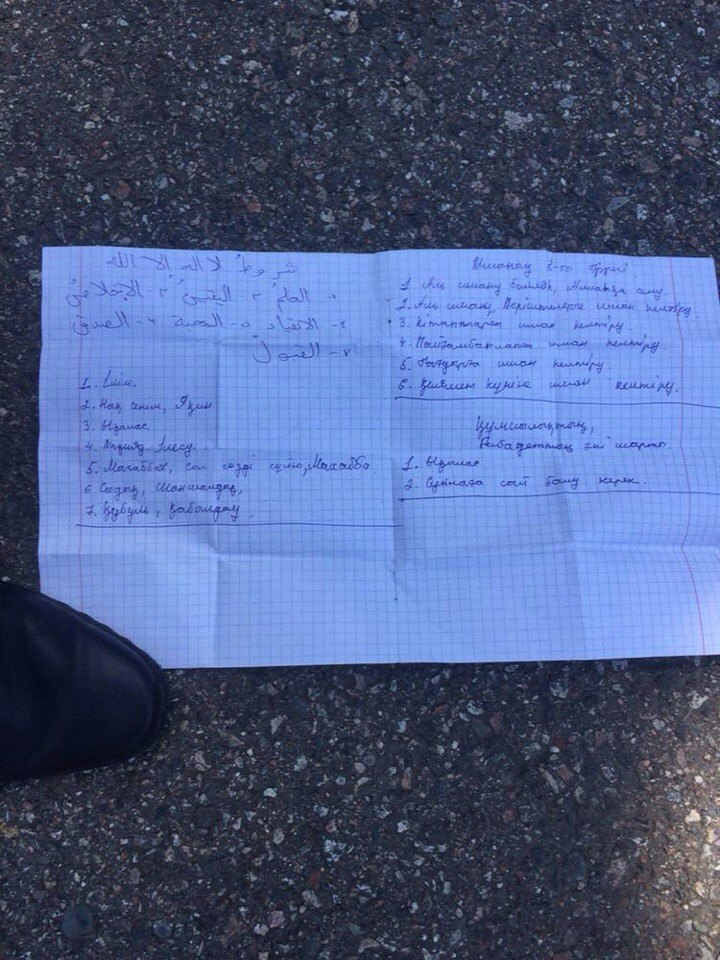 شروط لا اله الا الله
١- العلم ٢- اليقين ٣- الإخلاص
٤- الانقياد ٥- المحبة ٦- الصدق
٧- القبول
1. Ілім.
2. Нақ сенім, Яқин
3. Ықлас
4. Інқияд
5. Махаббат, сол сөзді сүйю, Махабба
6. Сыдқ, Шыншылдық,
7. Қубуль, қабылдау.
Иманның 6-ты тірегі.
1. Алл
2. Періштелерге иман келтіру.
3. Кітаптарға иман келтіру.
4. Пайғамбарларға иман келтіру.
5. Тағдырға иман келтіру.
6. Қиямет күніне иман келтіру.
Құлшылықтың,
Ғибадеттің екі шарты.
1. Ықылас
2. Суннаға сай болу керек.